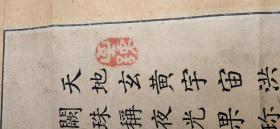 天地玄黃宇宙洪
闕珠稱夜光果珍